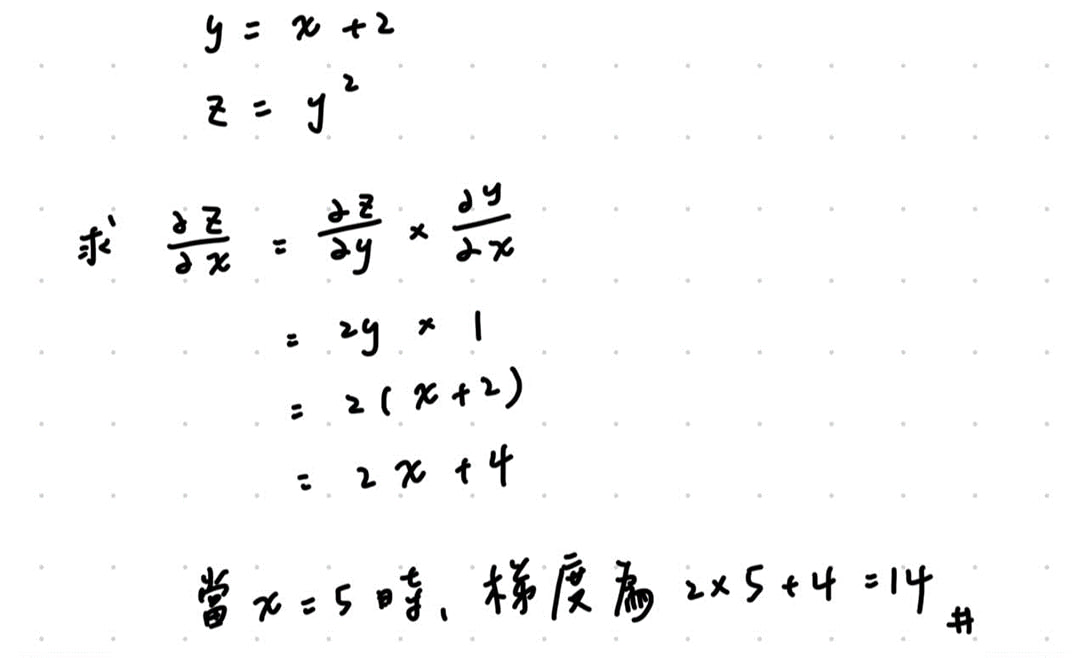 y = x + 2
z = y²
求 ∂z/∂x = ∂z/∂y × ∂y/∂x
= 2y × 1
= 2(x+2)
= 2x + 4
當 x = 5 時, 梯度為 2×5+4 = 14 #